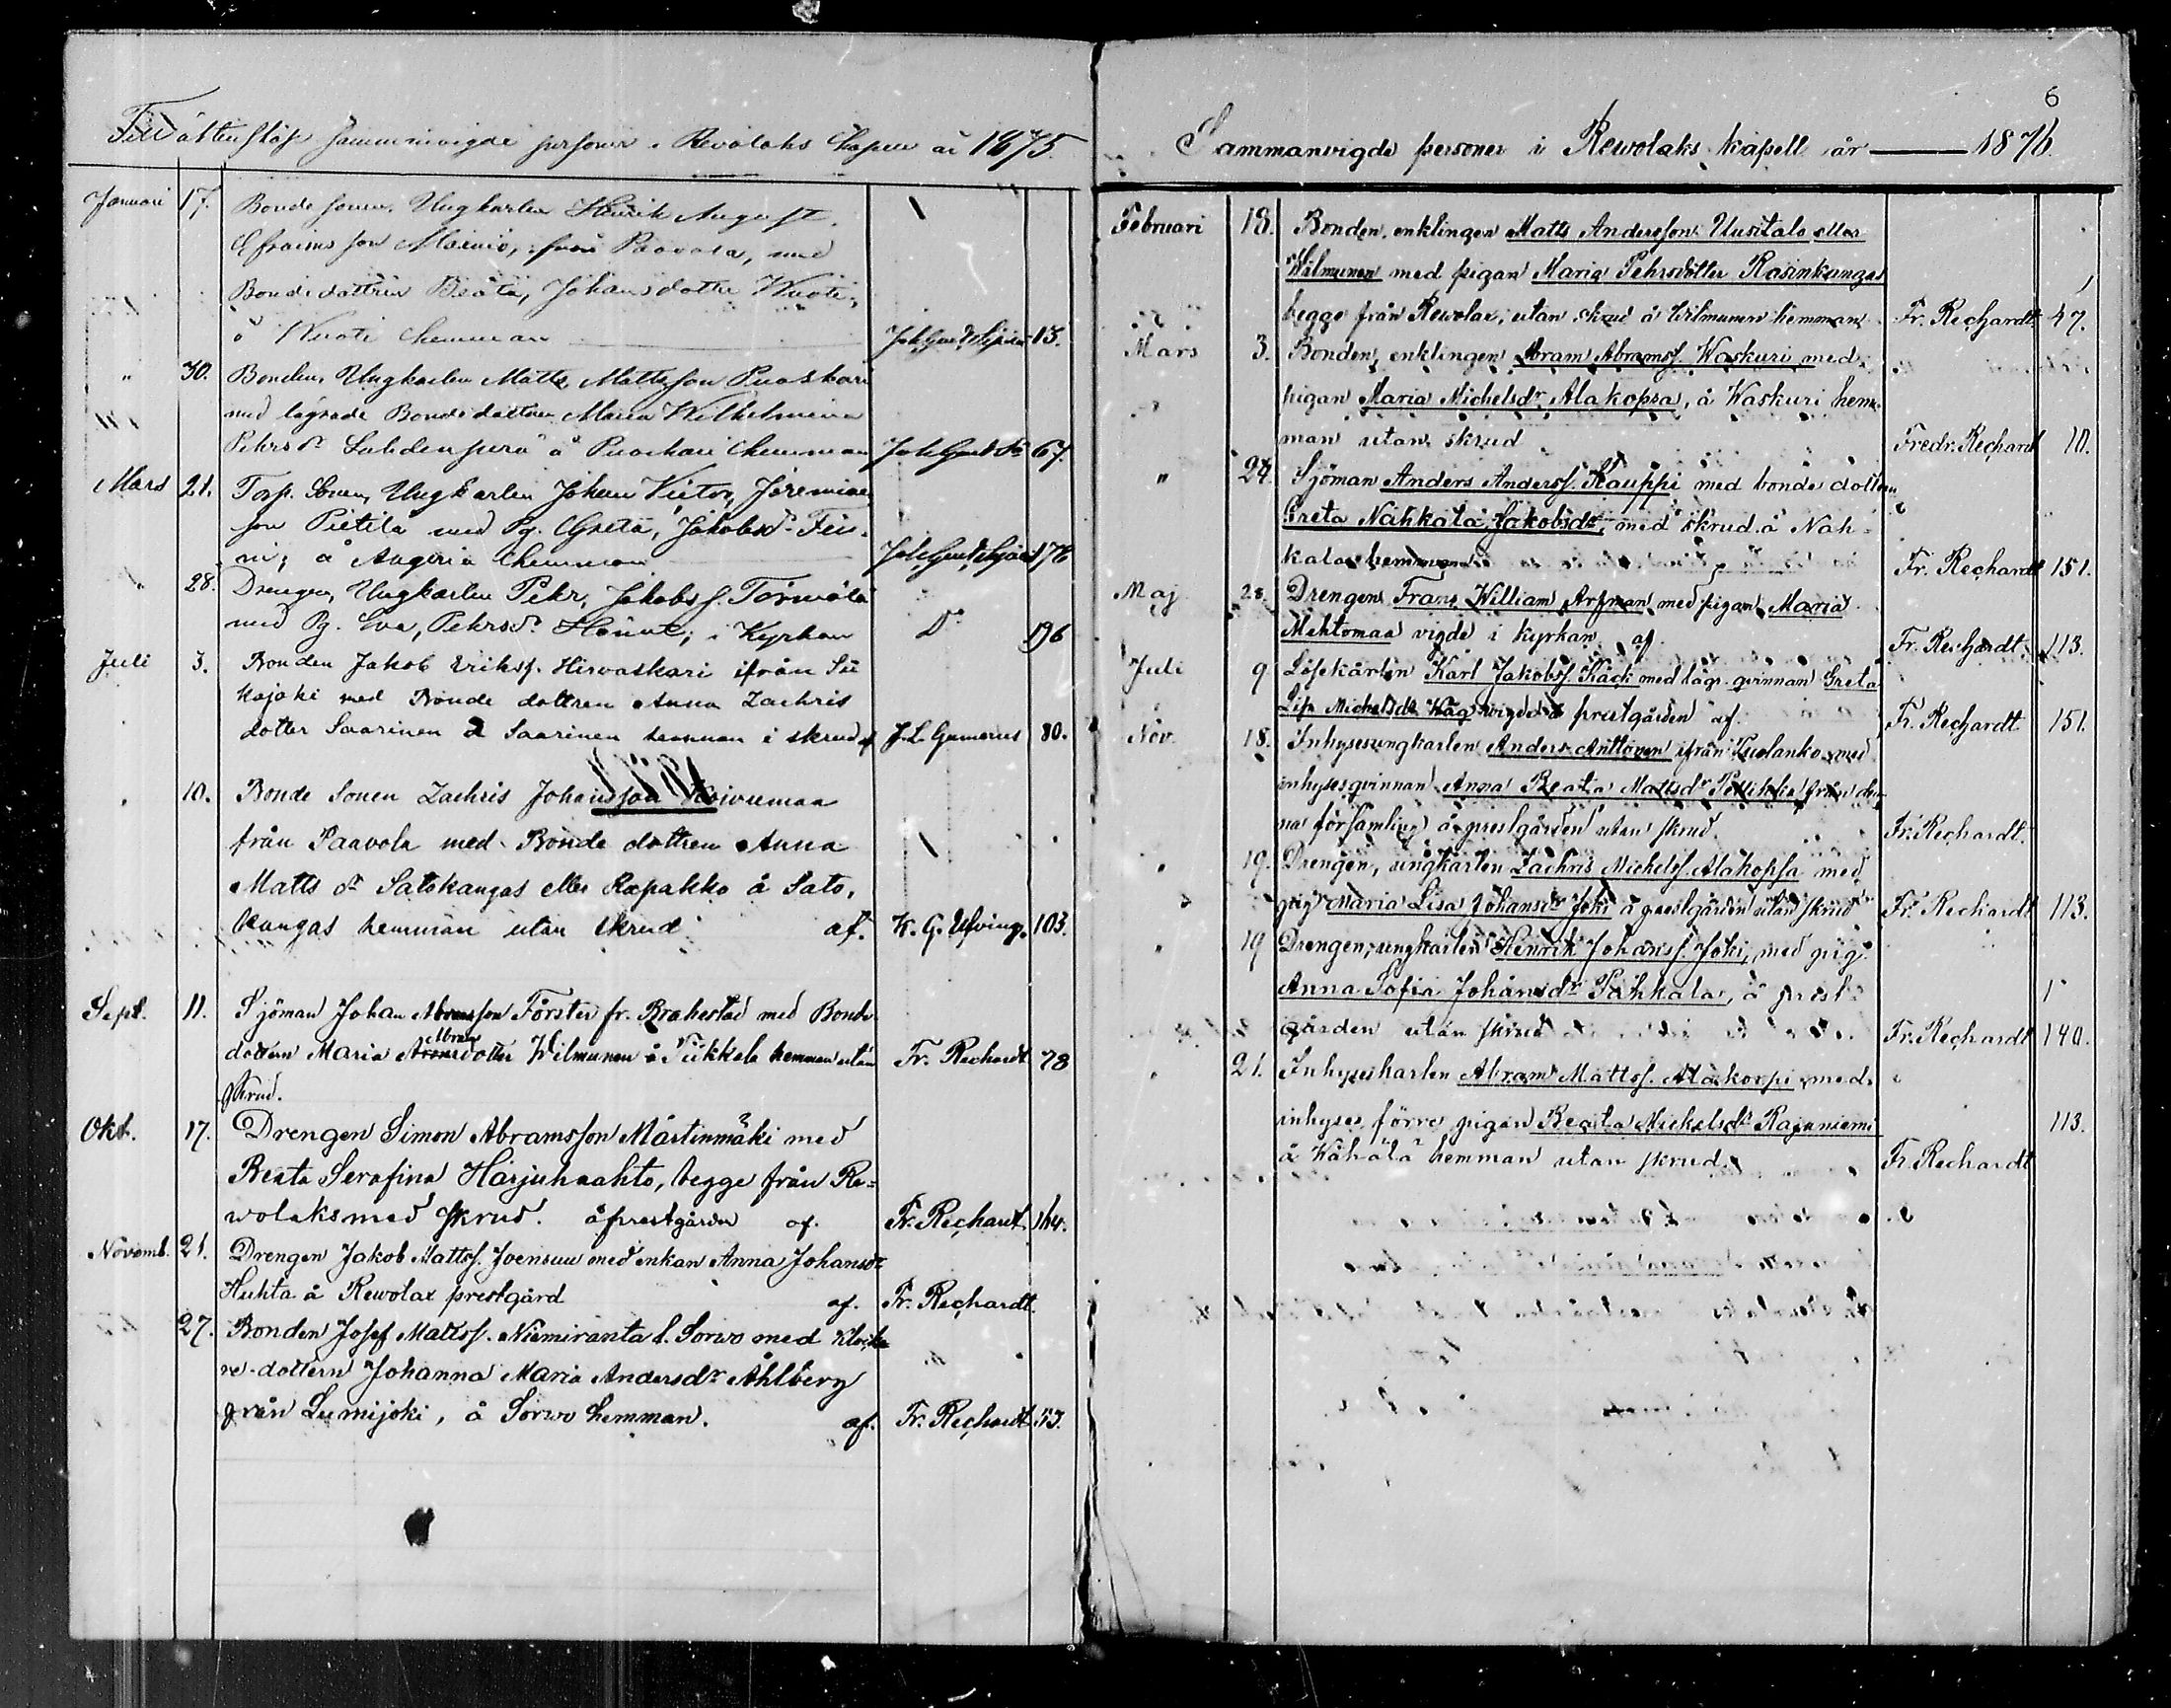 Till äktenskap sammanvigde personer i Revolaks Capell år 1875.
Januari 17. Bonde sonen, Ungkarlen Henrik August
Efraims son Mainio, från Paavola, med
Bondedottren Beata, Johansdotter Wuoti,
å Wuoti hemman 13.
" 30. Bonden, Ungkarlen Matts Mattsson Puoskari
med lägrade Bondedottren Maria Wilhelmina
Pehrs dr Lahdenperä å Puoskari hemman 67.
Mars 21. Torp. Sonen, Ungkarlen Johan Victor, Jeremias
son Pietila med Pg. Greta, Jakobsdr
å hemman 176
" 28. Drengen, Ungkarlen Pehr, Jakobss. Törmälä
med Pg. Eva, Pehrsdr i Kyrkan Do 196
Juli 3. Bonden Jakob Erikss. Hirvaskari ifrån Sii
kajoki med Bonde dottren Anna Zachris
dotter Saarinen å Saarinen hemman i skrud af J. L. Gumerus 80.
" 10. Bonde Sonen Zachris Johansson Koivumaa
från Paavola med Bonde dottren Anna
Matts dr Satokangas eller Rapakko å Sato,
kangas hemman utan skrud af. K. G. Ulving. 103.
Sept. 11. Sjöman Johan Abramsson Förster fr. Brahestad med Bonde
dottern Maria Abramsdotter Wilmunen å Tiikkala hemman utan Fr. Rechardt 78
skrud.
Okt. 17. Drengen Simon Abramsson Mästinmäki med
Beata Serafina Harjuhaahto, begge från Re=
wolaks med skrud. å prestgården af. Fr. Rechardt 164.
Novemb. 21. Drengen Jakob Mattss. Joensuu med enkan Anna Johansdr
Huhta å Rewolax prestgård af. Fr. Rechardt.
27. Bonden Josef Mattss. Niemiranta l. Sorwo med Klocka
re-dottern Johanna Maria Andersdr Åhlberg
från Lumijoki, å Sorwo hemman. af. Fr. Rechardt 53.
6
Sammanvigde personer i Rewolaks kapell år 1876.
Februari 18. Bonden, enklingen Matts Andersson Uusitalo eller
Wilmunen med pigan Maria Pehrsdotter Rasinkangas
begge från Rewolax, utan skrud å Wilmunen hemman Fr. Rechardt 47.
Mars 3. Bonden, enklingen Abram Abramss. Waskuri med
pigan Maria Michelsdr Alakopsa, å Waskuri hem
man utan skrud Fredr. Rechardt 10.
" 24. Sjöman Anders Anderss. Kauppi med bonde dottern
Greta Nahkala Jakobsdr, med skrud å Nah-
kala hemman Fr. Rechardt 151.
Maj 28. Drengen Frans William Arfman med pigan Maria
Mehtomaa vigde i kyrkan af Fr. Rechardt 113.
Juli 9 Löfekarlen Karl Jakobss. Käck med lägr. qvinnan Greta
Lisa Michelsdr vigde å prestgården af Fr. Rechardt 151.
Nov. 18. Inhysesungkarlen Anders Anttonen ifrån Puolanko med
inhysesqvinnan Anna Beata Mattsdr från den
na församling å prestgården utan skrud. Fr. Rechardt.
" 19. Drengen, ungkarlen Zachris Michelss. Alakopsa med
pig. Maria Lisa Johansdr Joki å prestgården utan skrud Fr. Rechardt 113.
" 19 Drengen, ungkarlen Henrik Johanss. Joki, med pig.
Anna Sofia Johansdr Pähkala, å prest
gården utan skrud Fr. Rechardt 140.
" 21. Inhyseskarlen Abram Mattss. Alakorpi med
inhyses förre pigan Beata Michelsdr Rajaniemi 113.
å Kähälä hemman utan skrud. Fr. Rechardt